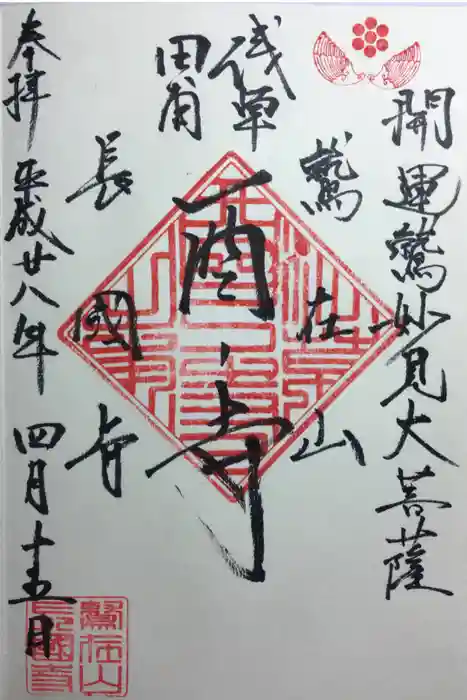 開運鷲妙見大菩薩
浅草
田甫
鷲在山
酉の寺
長國寺
奉拝
平成廿八年四月十五日
鷲在山
長國寺